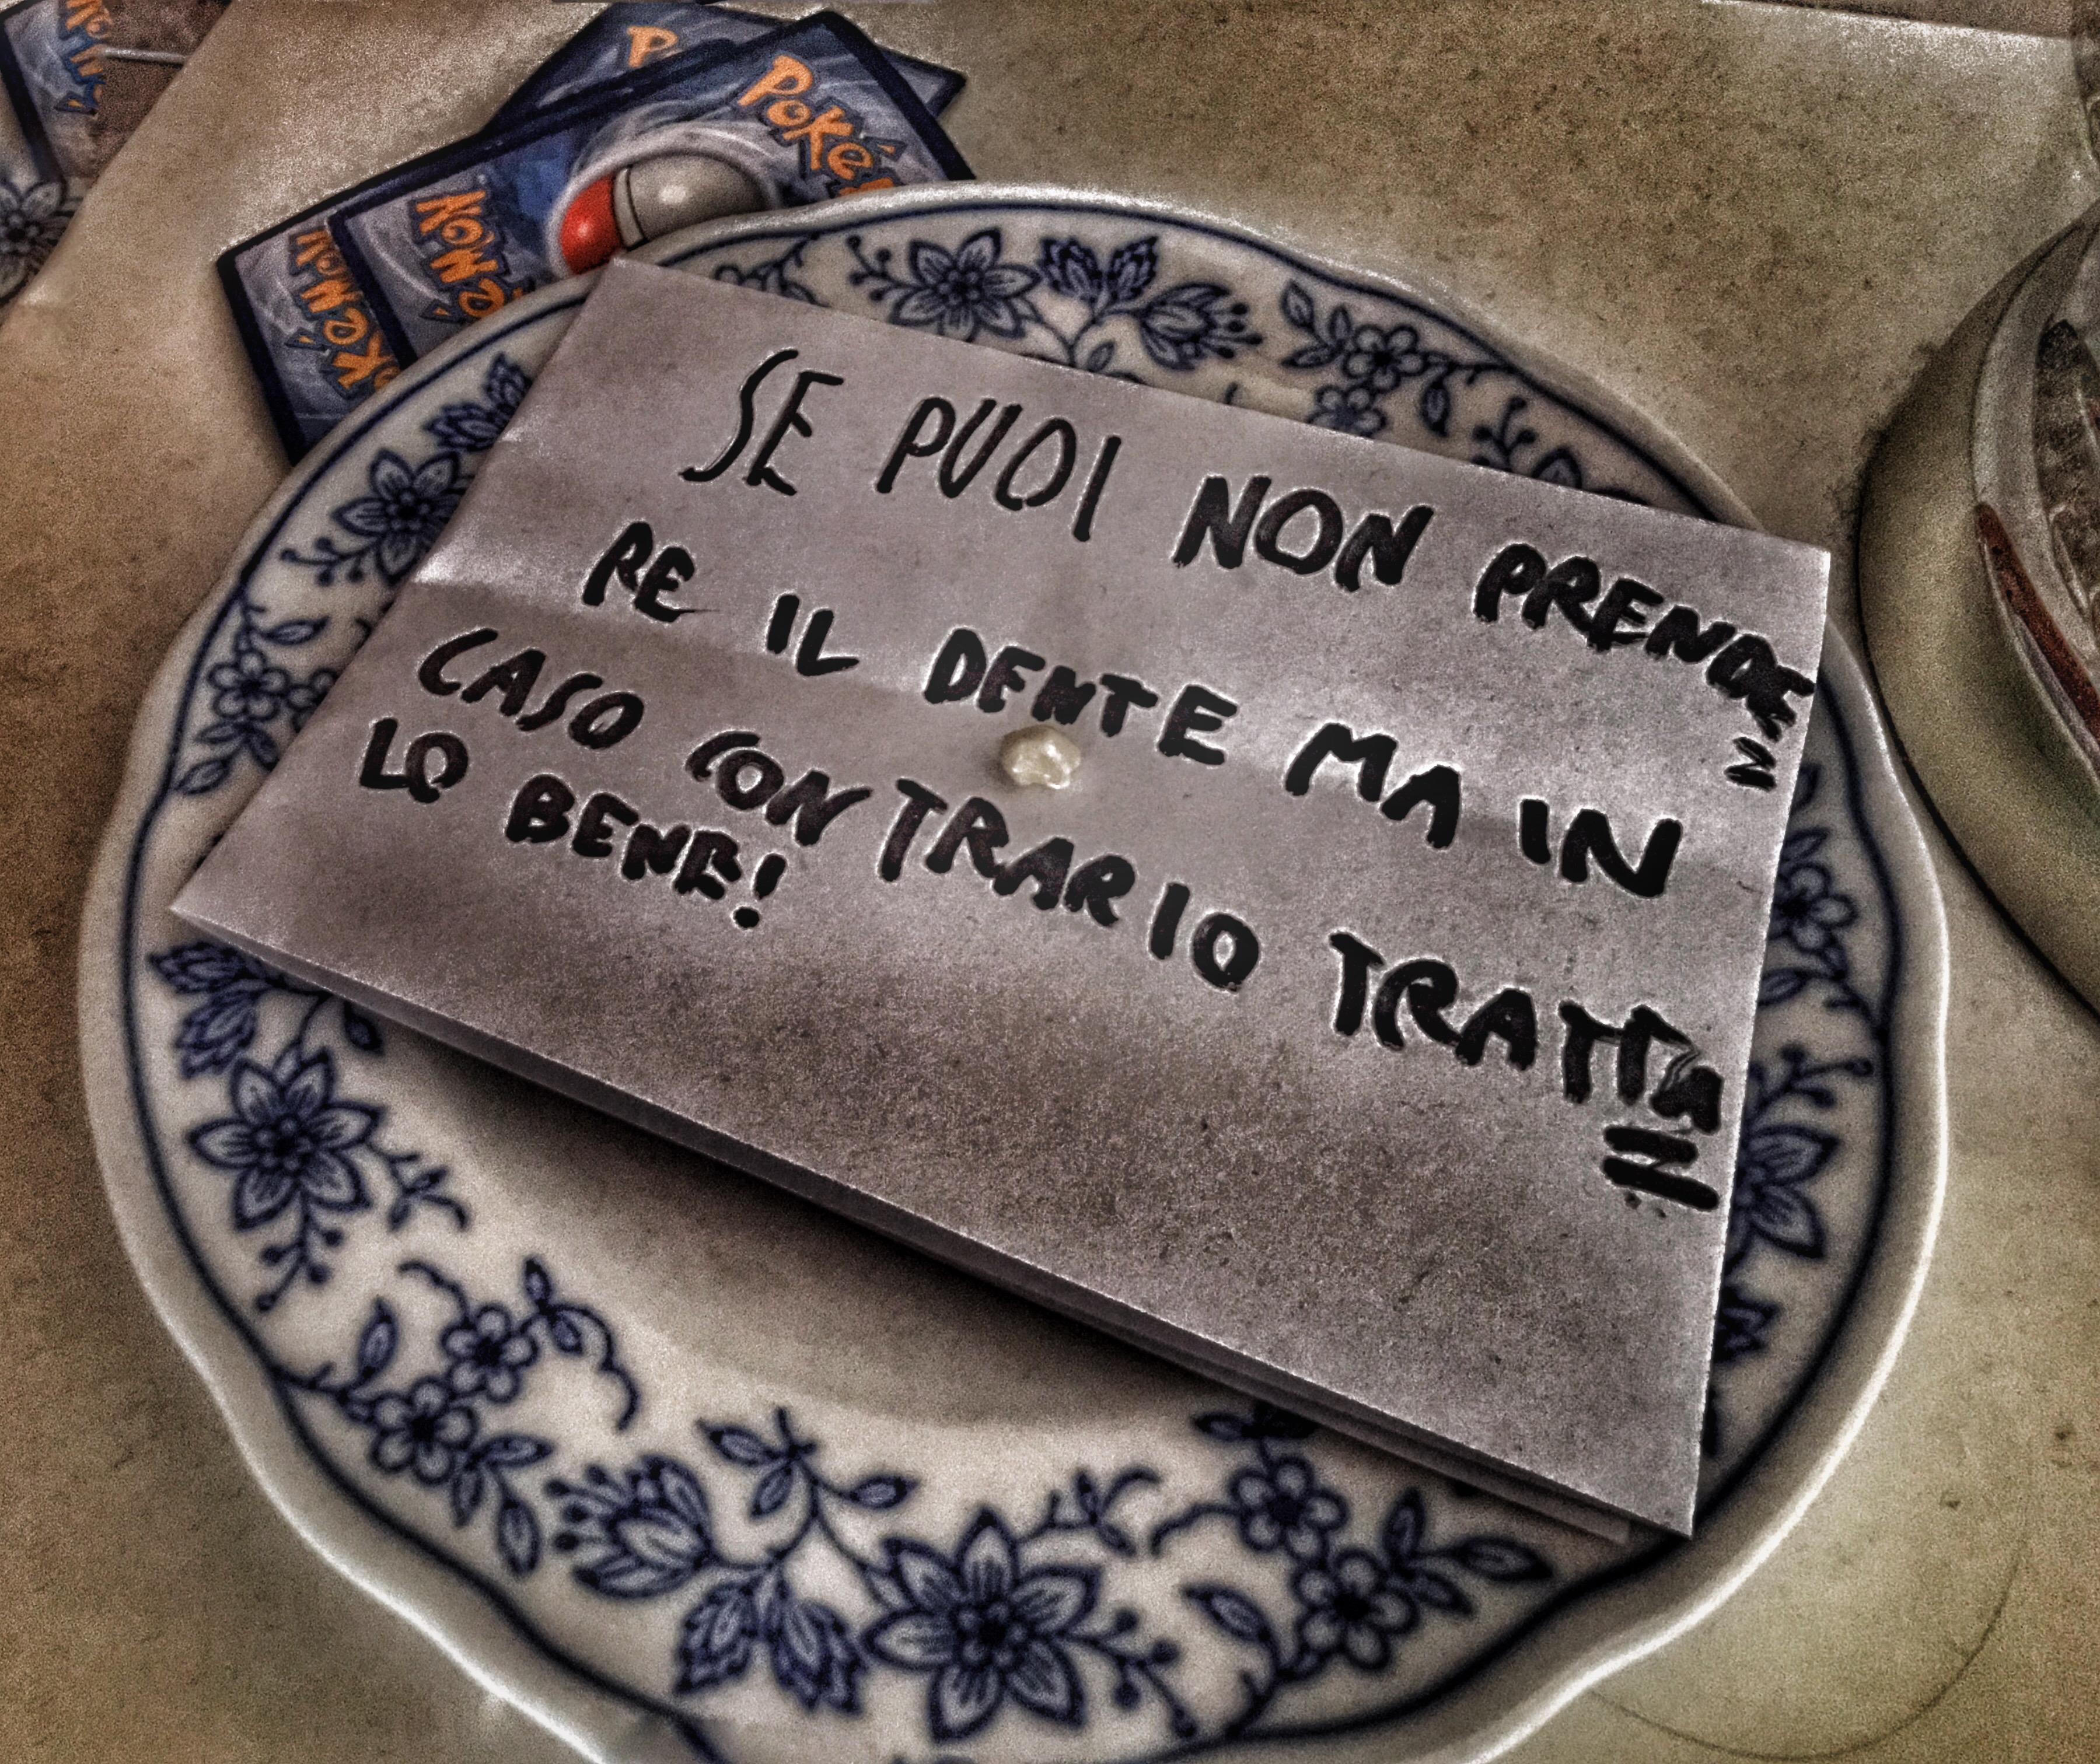 Poké
NOMé
P
NOMéK
SE PUOI NON PRENDE=
RE IL DENTE MA IN
CASO CONTRARIO TRATTA=
LO BENE!